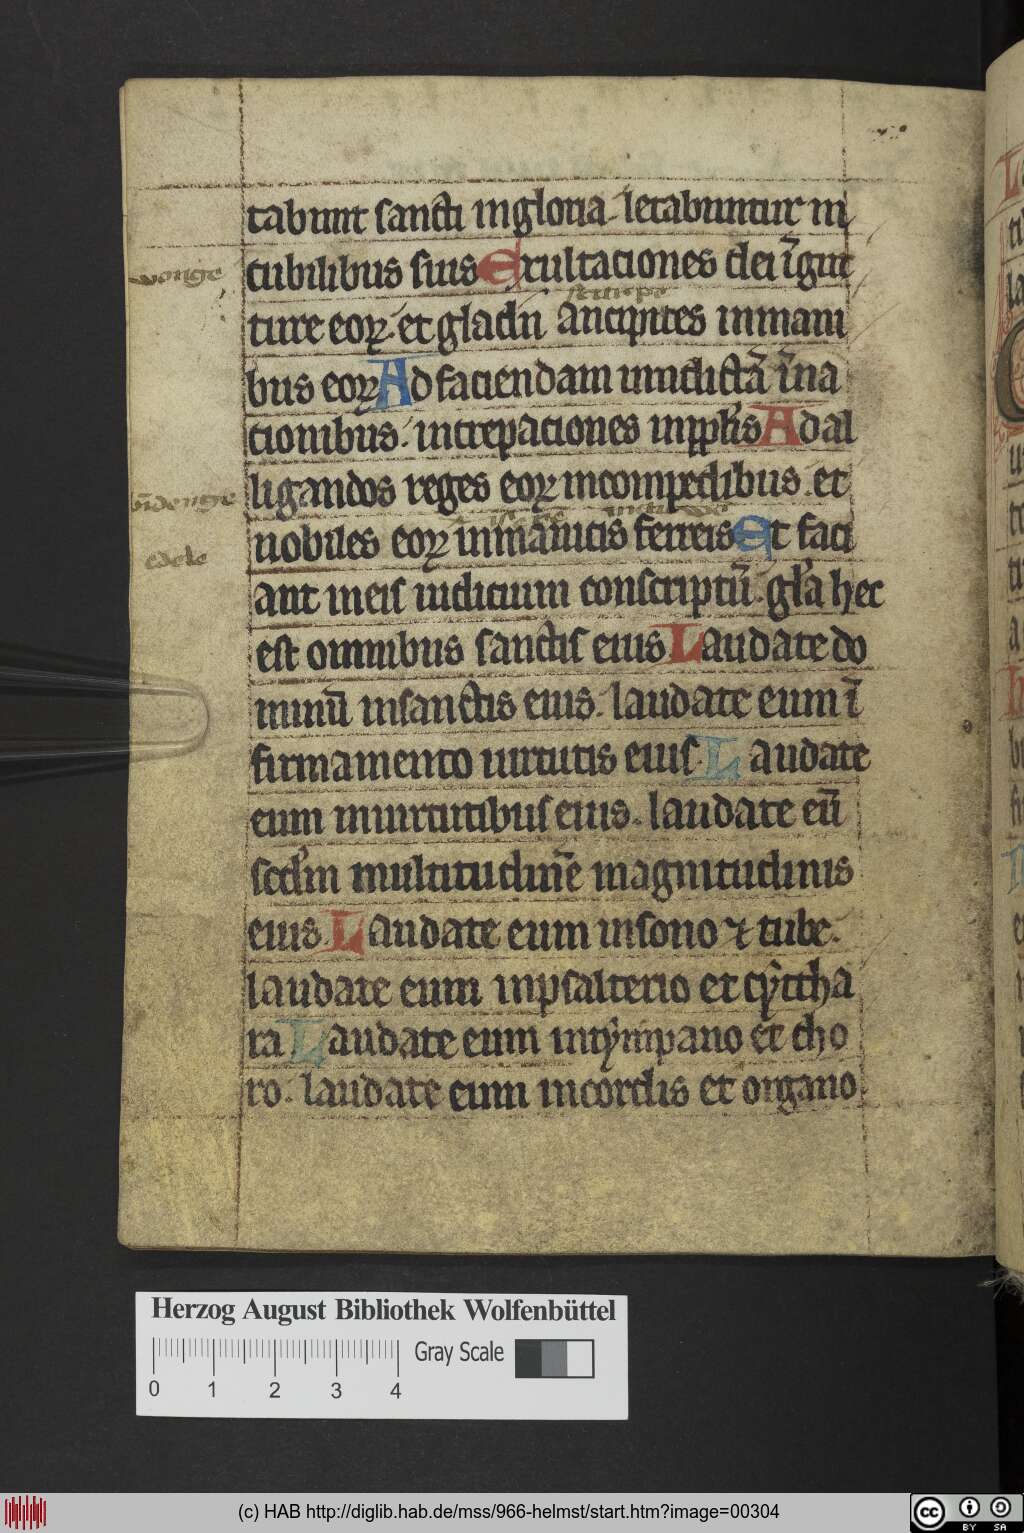 tabunt sancti in gloria. letabuntur in
wonge
cubilibus suis Exultationes dei ī gut
scarpe
ture eoꝝ. et gladii ancipites in mani
bus eoꝝ Ad faciendam uindictā ī na
cionibus. increpaciones in pplīs Ad al
ligandos reges eoꝝ in compedibus. et
nobiles eoꝝ in manicis ferreis Et faci
edele
ant in eis iudicium conscriptū. gl̄a hec
est omnibus sanctis eius Laudate do
minū in sanctis eius. laudate eum ī
firmamento uirtutis eius. Laudate
eum in uirtutibus eius. laudate eū
scdm̄ multitudinē magnitudinis
eius. Laudate eum in sono ⁊ tube.
laudate eum in psalterio et cythа
ra Laudate eum in tympano et cho
ro. laudate eum in cordis et organo
Herzog August Bibliothek Wolfenbüttel
Gray Scale
0 1 2 3 4
(c) HAB http://diglib.hab.de/mss/966-helmst/start.htm?image=00304
cc BY SA